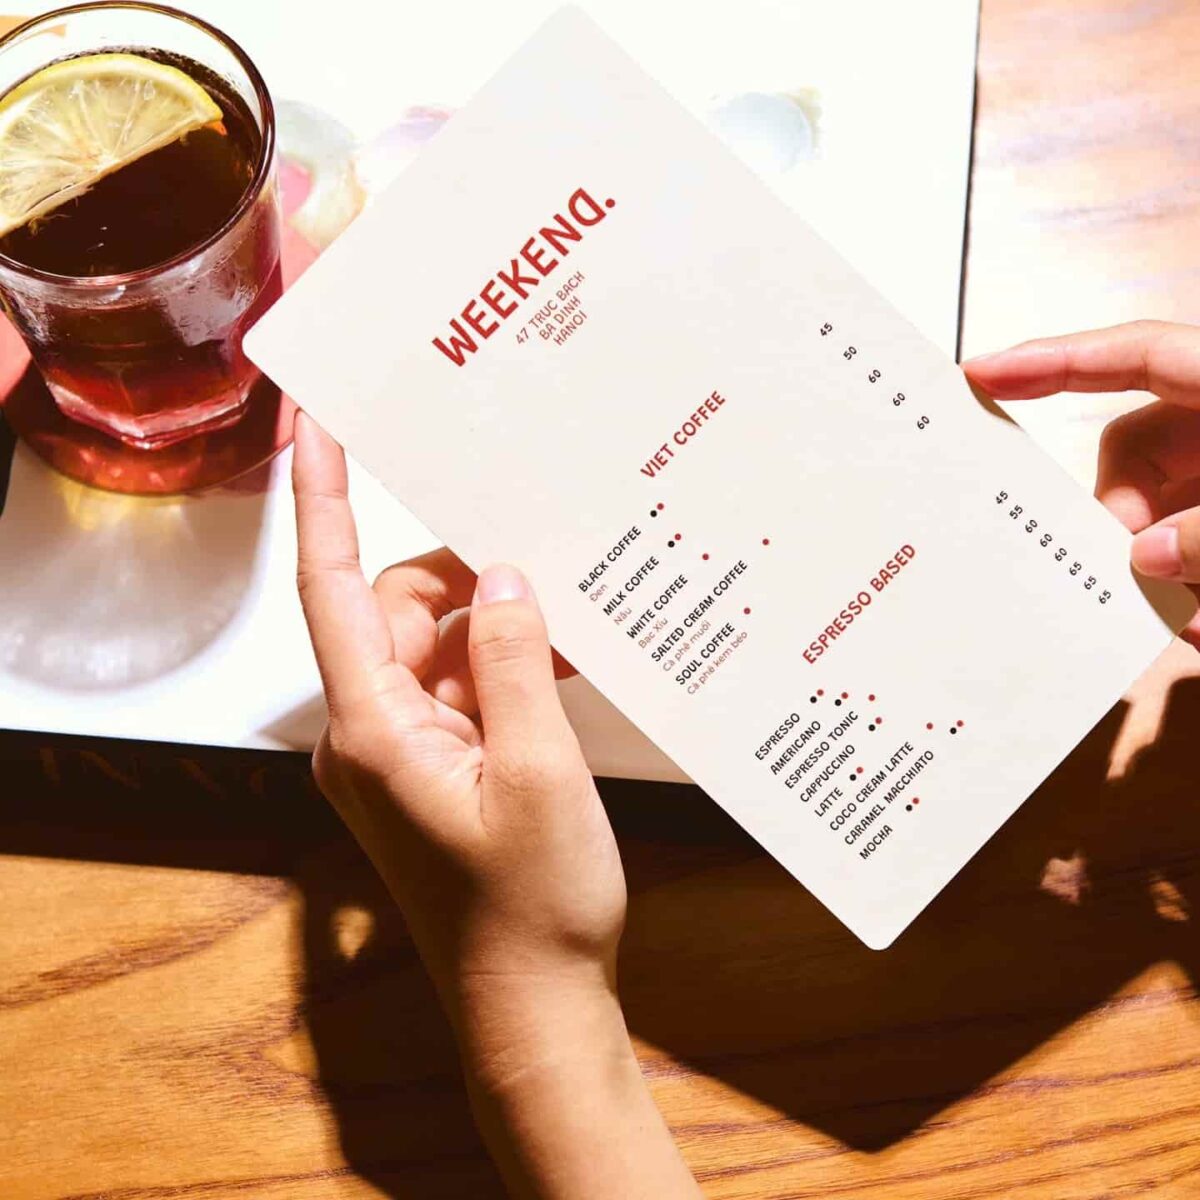 WEEKEND.
47 TRUC BACH
BA DINH
HANOI
VIET COFFEE
BLACK COFFEE 45
Đen
MILK COFFEE 50
Nâu
WHITE COFFEE 60
Bạc Xỉu
SALTED CREAM COFFEE 60
Cà phê muối
SOUL COFFEE 60
Cà phê kem béo
ESPRESSO BASED
ESPRESSO 45
AMERICANO 55
ESPRESSO TONIC 60
CAPPUCCINO 60
LATTE 60
COCO CREAM LATTE 65
CARAMEL MACCHIATO 65
MOCHA 65